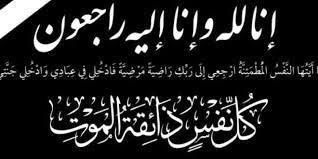 إنا لله وإنا إليه راجعون
يا أيتها النَّفْسُ المُطْمَئِنَّةُ ارْجِعِي إِلَى رَبِّكِ رَاضِيَةً مَرْضِيَّةً فَادْخُلِي فِي عِبَادِي وَادْخُلِي جَنَّتِي
كُلُّ نَفْسٍ ذَائِقَةُ الْمَوْتِ